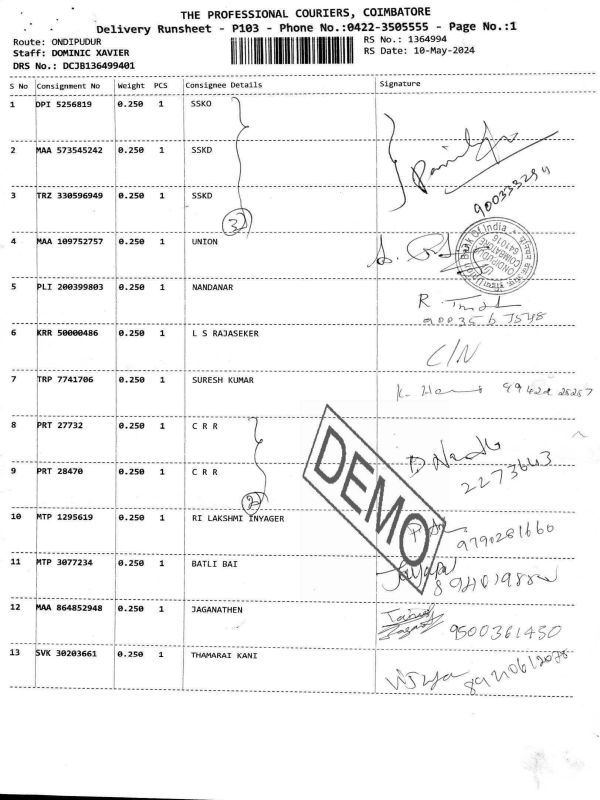 THE PROFESSIONAL COURIERS, COIMBATORE
Delivery Runsheet - P103 - Phone No.:0422-3505555 - Page No.:1
Route: ONDIPUDUR RS No.: 1364994
Staff: DOMINIC XAVIER RS Date: 10-May-2024
DRS No.: DCJB136499401
S No Consignment No Weight PCS Consignee Details Signature
1 DPI 5256819 0.250 1 SSKO
2 MAA 573545242 0.250 1 SSKD
3 TRZ 330596949 0.250 1 SSKD
3
4 MAA 109752757 0.250 1 UNION
Bank Of India
ONDIPUDUR
COIMBATORE
641016
5 PLI 200399803 0.250 1 NANDANAR R.
6 KRR 50000486 0.250 1 L S RAJASEKER C/N
7 TRP 7741706 0.250 1 SURESH KUMAR K.
8 PRT 27732 0.250 1 C R R
9 PRT 28470 0.250 1 C R R 2273643
2
DEMO
10 MTP 1295619 0.250 1 RI LAKSHMI INYAGER 9790281660
11 MTP 3077234 0.250 1 BATLI BAI
12 MAA 864852948 0.250 1 JAGANATHEN 9500361450
13 SVK 30203661 0.250 1 THAMARAI KANI